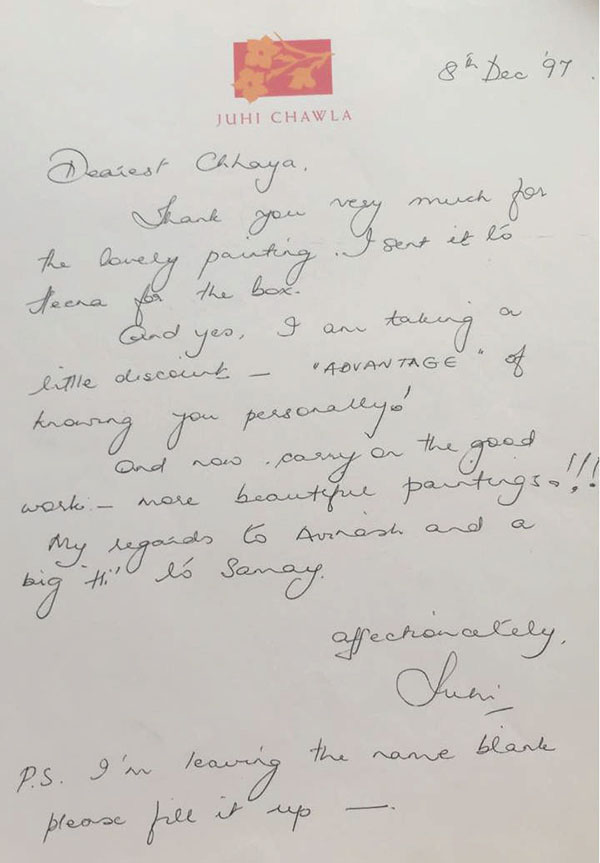 8th Dec '97.
JUHI CHAWLA
Dearest Chhaya,
Thank you very much for
the lovely painting. I sent it to
Heena for the box.
And yes, I am taking a
little discount – "ADVANTAGE" of
knowing you personally!
And now . carry on the good
work – more beautiful paintings!!!
My regards to Avinash and a
big 'Hi' to Sanay.
affectionately,
Juhi
P.S. I'm leaving the name blank
please fill it up —.